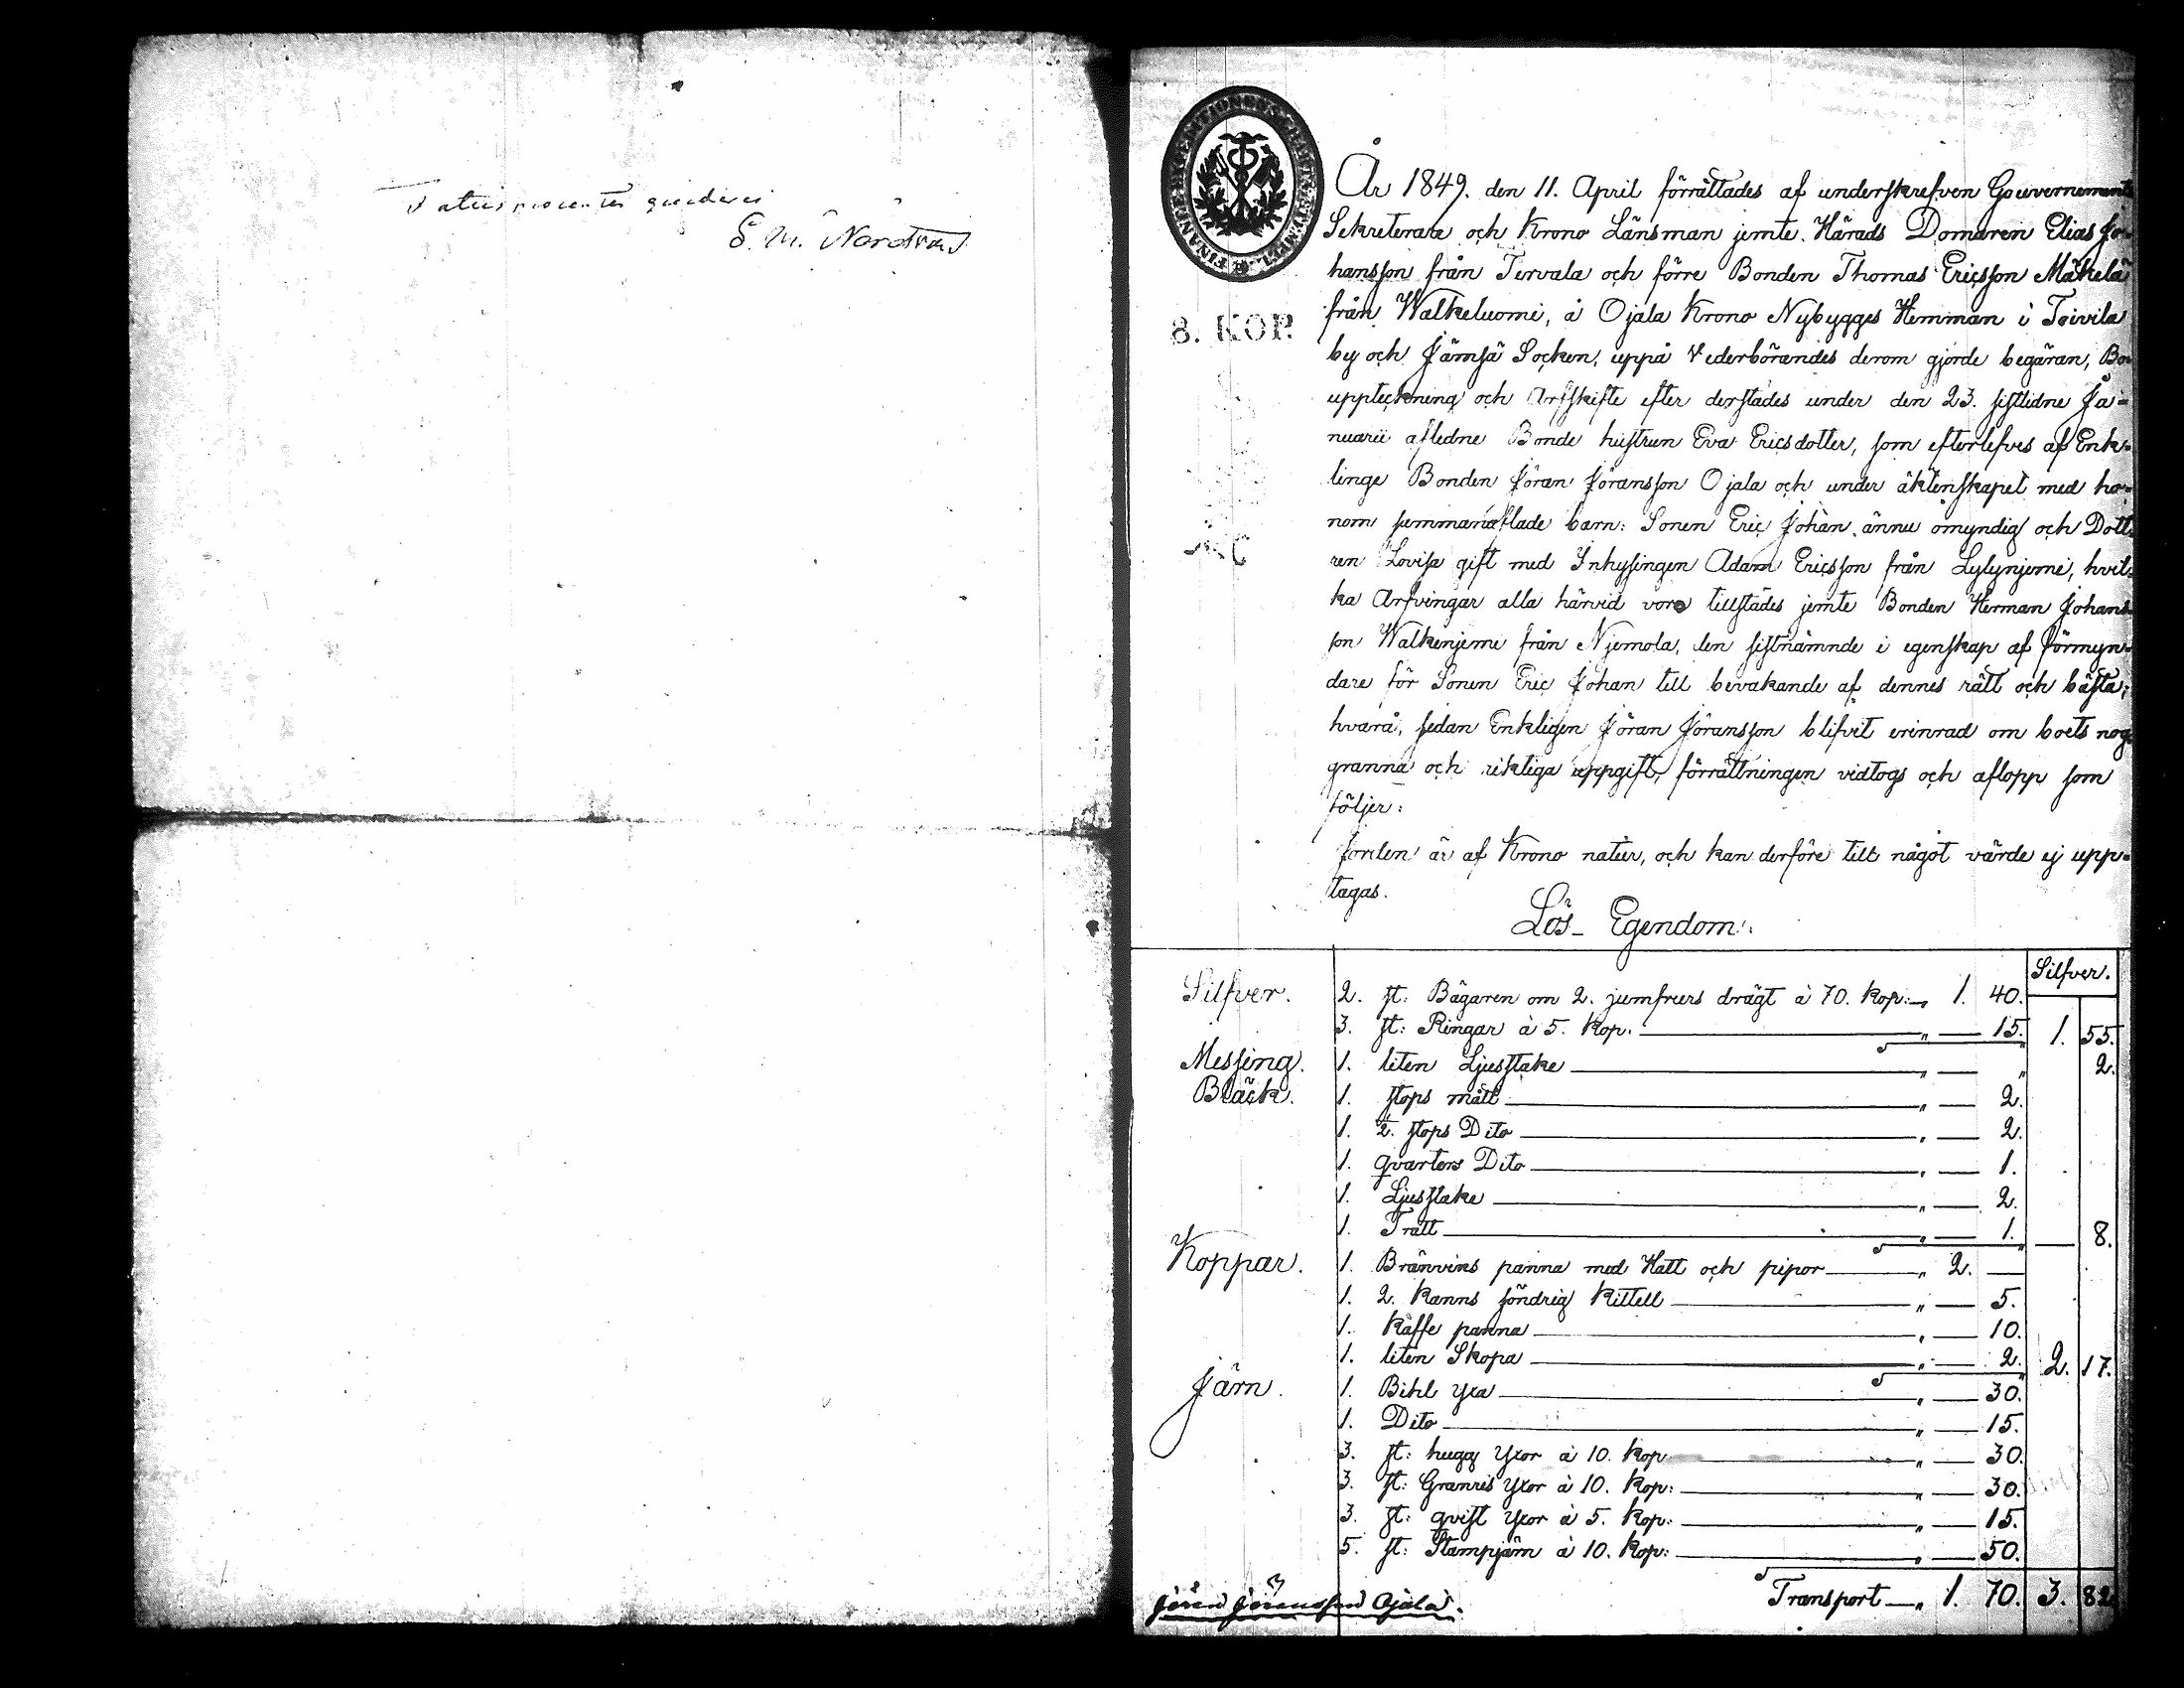 S. M. Nordström
8. KOP.
År 1849. den 11. April förrättades af underskrefven Gouvernements
Sekreterare och Krono Länsman jemte Härads Domaren Elias Jo-
hansson från Tervala och förre Bonden Thomas Ericsson Mäkelä
från Walkeluomi, å Ojala Krono Nybygges Hemman i Toivila
by och Jämsä Socken, uppå Vederbörandes derom gjorde begäran, Bo
uppteckning och Arfskifte efter derstädes under den 23. sistlidne Ja-
nuarii aflidne Bonde hustrun Eva Ericsdotter, som efterlefves af Enk-
linge Bonden Jöran Jöransson Ojala och under äktenskapet med ho-
nom sammanaflade barn: Sonen Eric Johan, ännu omyndig och Dott-
ren Lovisa gift med Inhysingen Adam Ericsson från Lylynjemi, hvil-
ka Arfvingar alla härvid voro tillstädes jemte Bonden Herman Johans-
son Walkenjemi från Njemola, den sistnämnde i egenskap af förmyn-
dare för Sonen Eric Johan till bevakande af dennes rätt och bästa;
hvarå, sedan Enkligen Jöran Jöransson blifvit erinrad om boets nog-
granna och riktiga uppgift, förrättningen vidtogs och aflopp som
följer:
Jorden är af Krono natur, och kan derföre till något värde ej upp-
tagas.
Lös Egendom:
Silfver.
Silfver. 2. st: Bägaren om 2. jumfrurs drägt à 70. Kop: „ 1. 40.
3. st: Ringar à 5. Kop. „ — 15. 1. 55.
Messing. 1. liten Ljusstake „ — „ 2.
Bläck. 1. stops mått „ — 2.
1. ½. stops Dito „ — 2.
1. qvarters Dito „ — 1.
1. Ljusstake „ — 2.
1. Tratt „ — 1. — 8.
Koppar. 1. Bränvins panna med Hatt och pipor „ 2. —
1. 2. Kanns söndrig Kittell „ — 5.
1. Kaffe panna „ — 10.
1. liten Skopa „ — 2. 2. 17.
Järn. 1. Bihl yxa „ — 30.
1. Dito „ — 15.
3. st: hugg Yxor à 10. Kop „ — 30.
3. st: Granris Yxor à 10. Kop: „ — 30.
3. st: qvist yxor à 5. Kop: „ — 15.
5. st: Stampjärn à 10. Kop: „ — 50.
Transport „ 1. 70. 3. 82
Jöran Jöransson Ojala.